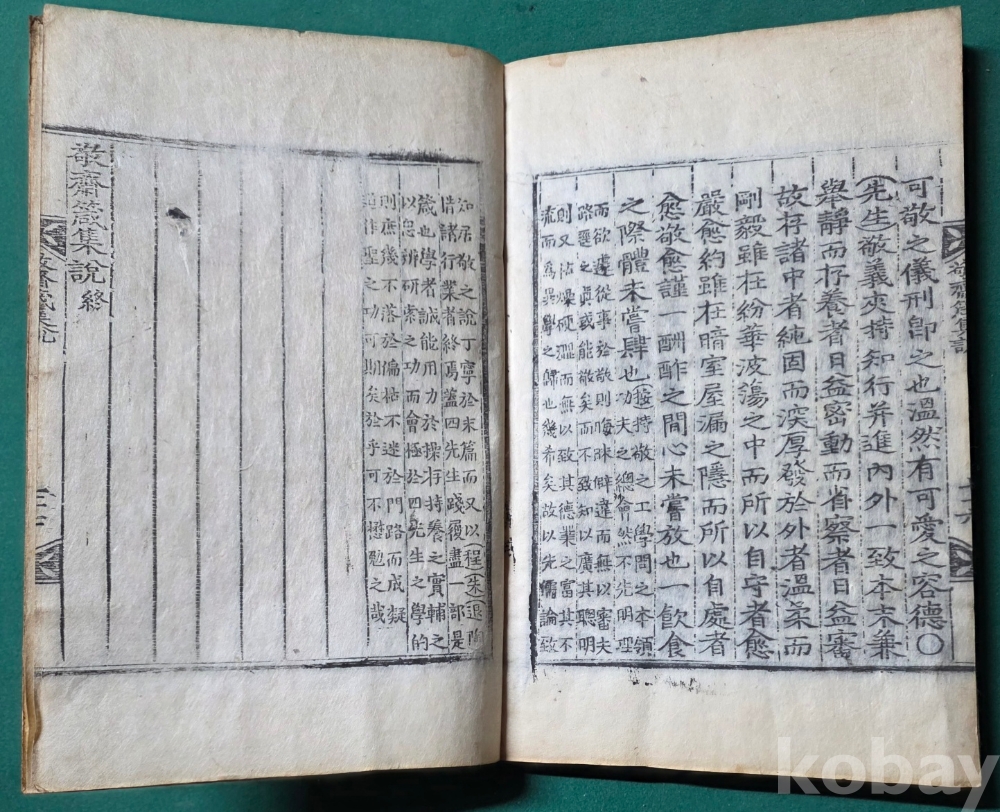 敬齋箴集說
可敬之儀刑卽之也溫然有可愛之容德〇
先生敬義夾持知行并進內外一致本末兼
舉靜而存養者日益密動而省察者日益審
故存諸中者純固而深厚發於外者溫柔而
剛毅雖在紛華波蕩之中而所以自守者愈
嚴愈約雖在暗室屋漏之隱而所以自處者
愈敬愈謹一酬酢之間心未嘗放也一飮食
之際體未嘗肆也
按持敬之工學問之本領
功夫之總會然不先明理
而欲遽從事於敬則晦昧僻違而無以審夫
路逕之眞或能敬矣而不致知以廣其聰明
則又枯燥硬澀而無以致其德業之富其不
流而爲異學之歸也幾希矣故以先儒論致
知居敬之說丁寧於末篇而又以程朱退陶
措諸行業者終焉蓋四先生踐履盡一部是
箴也學者誠能用力於操存持養之實輔之
以思辨硏索之功而會極於四先生之學的
則庶幾不落於偏枯不迷於門路而成凝
道作聖之功可期矣於乎可不懋勉之哉
敬齋箴集說終
kobay